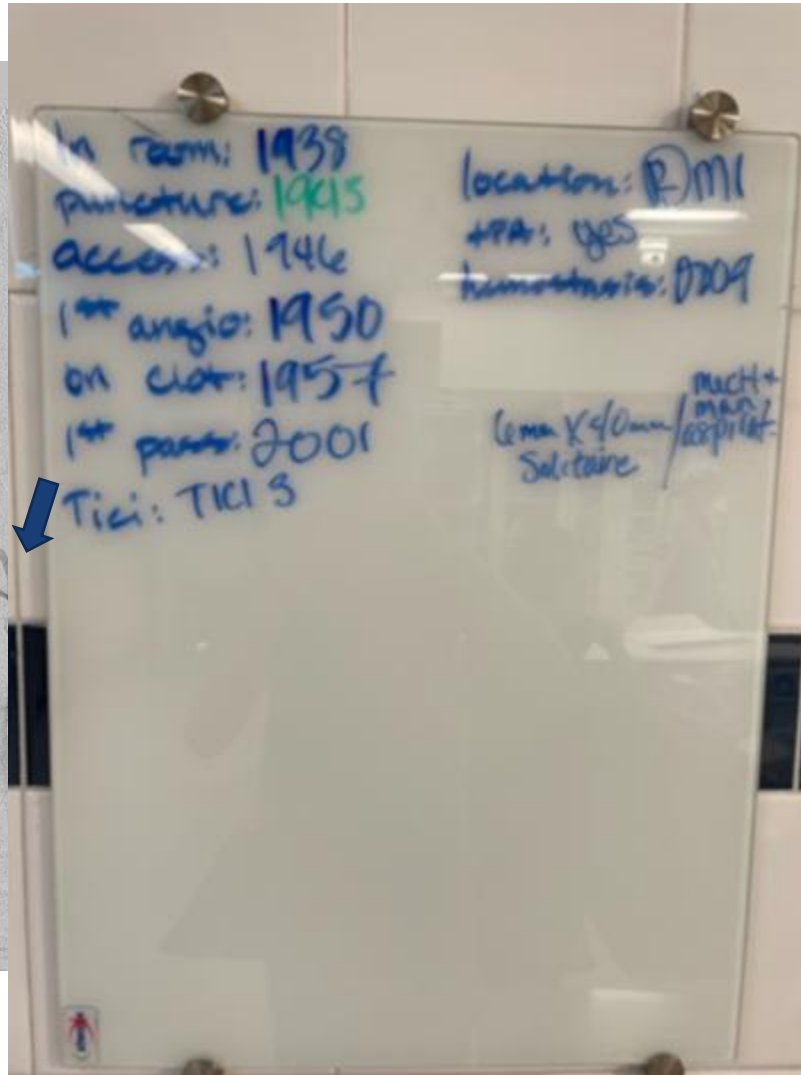 In room: 1938
puncture: 1945
access: 1946
1st angio: 1950
on clot: 1957
1st pass: 2001
Tici: TICI 3
location: (R) M1
tPA: yes
hemostasis:
6mm X 40mm /
Solitaire